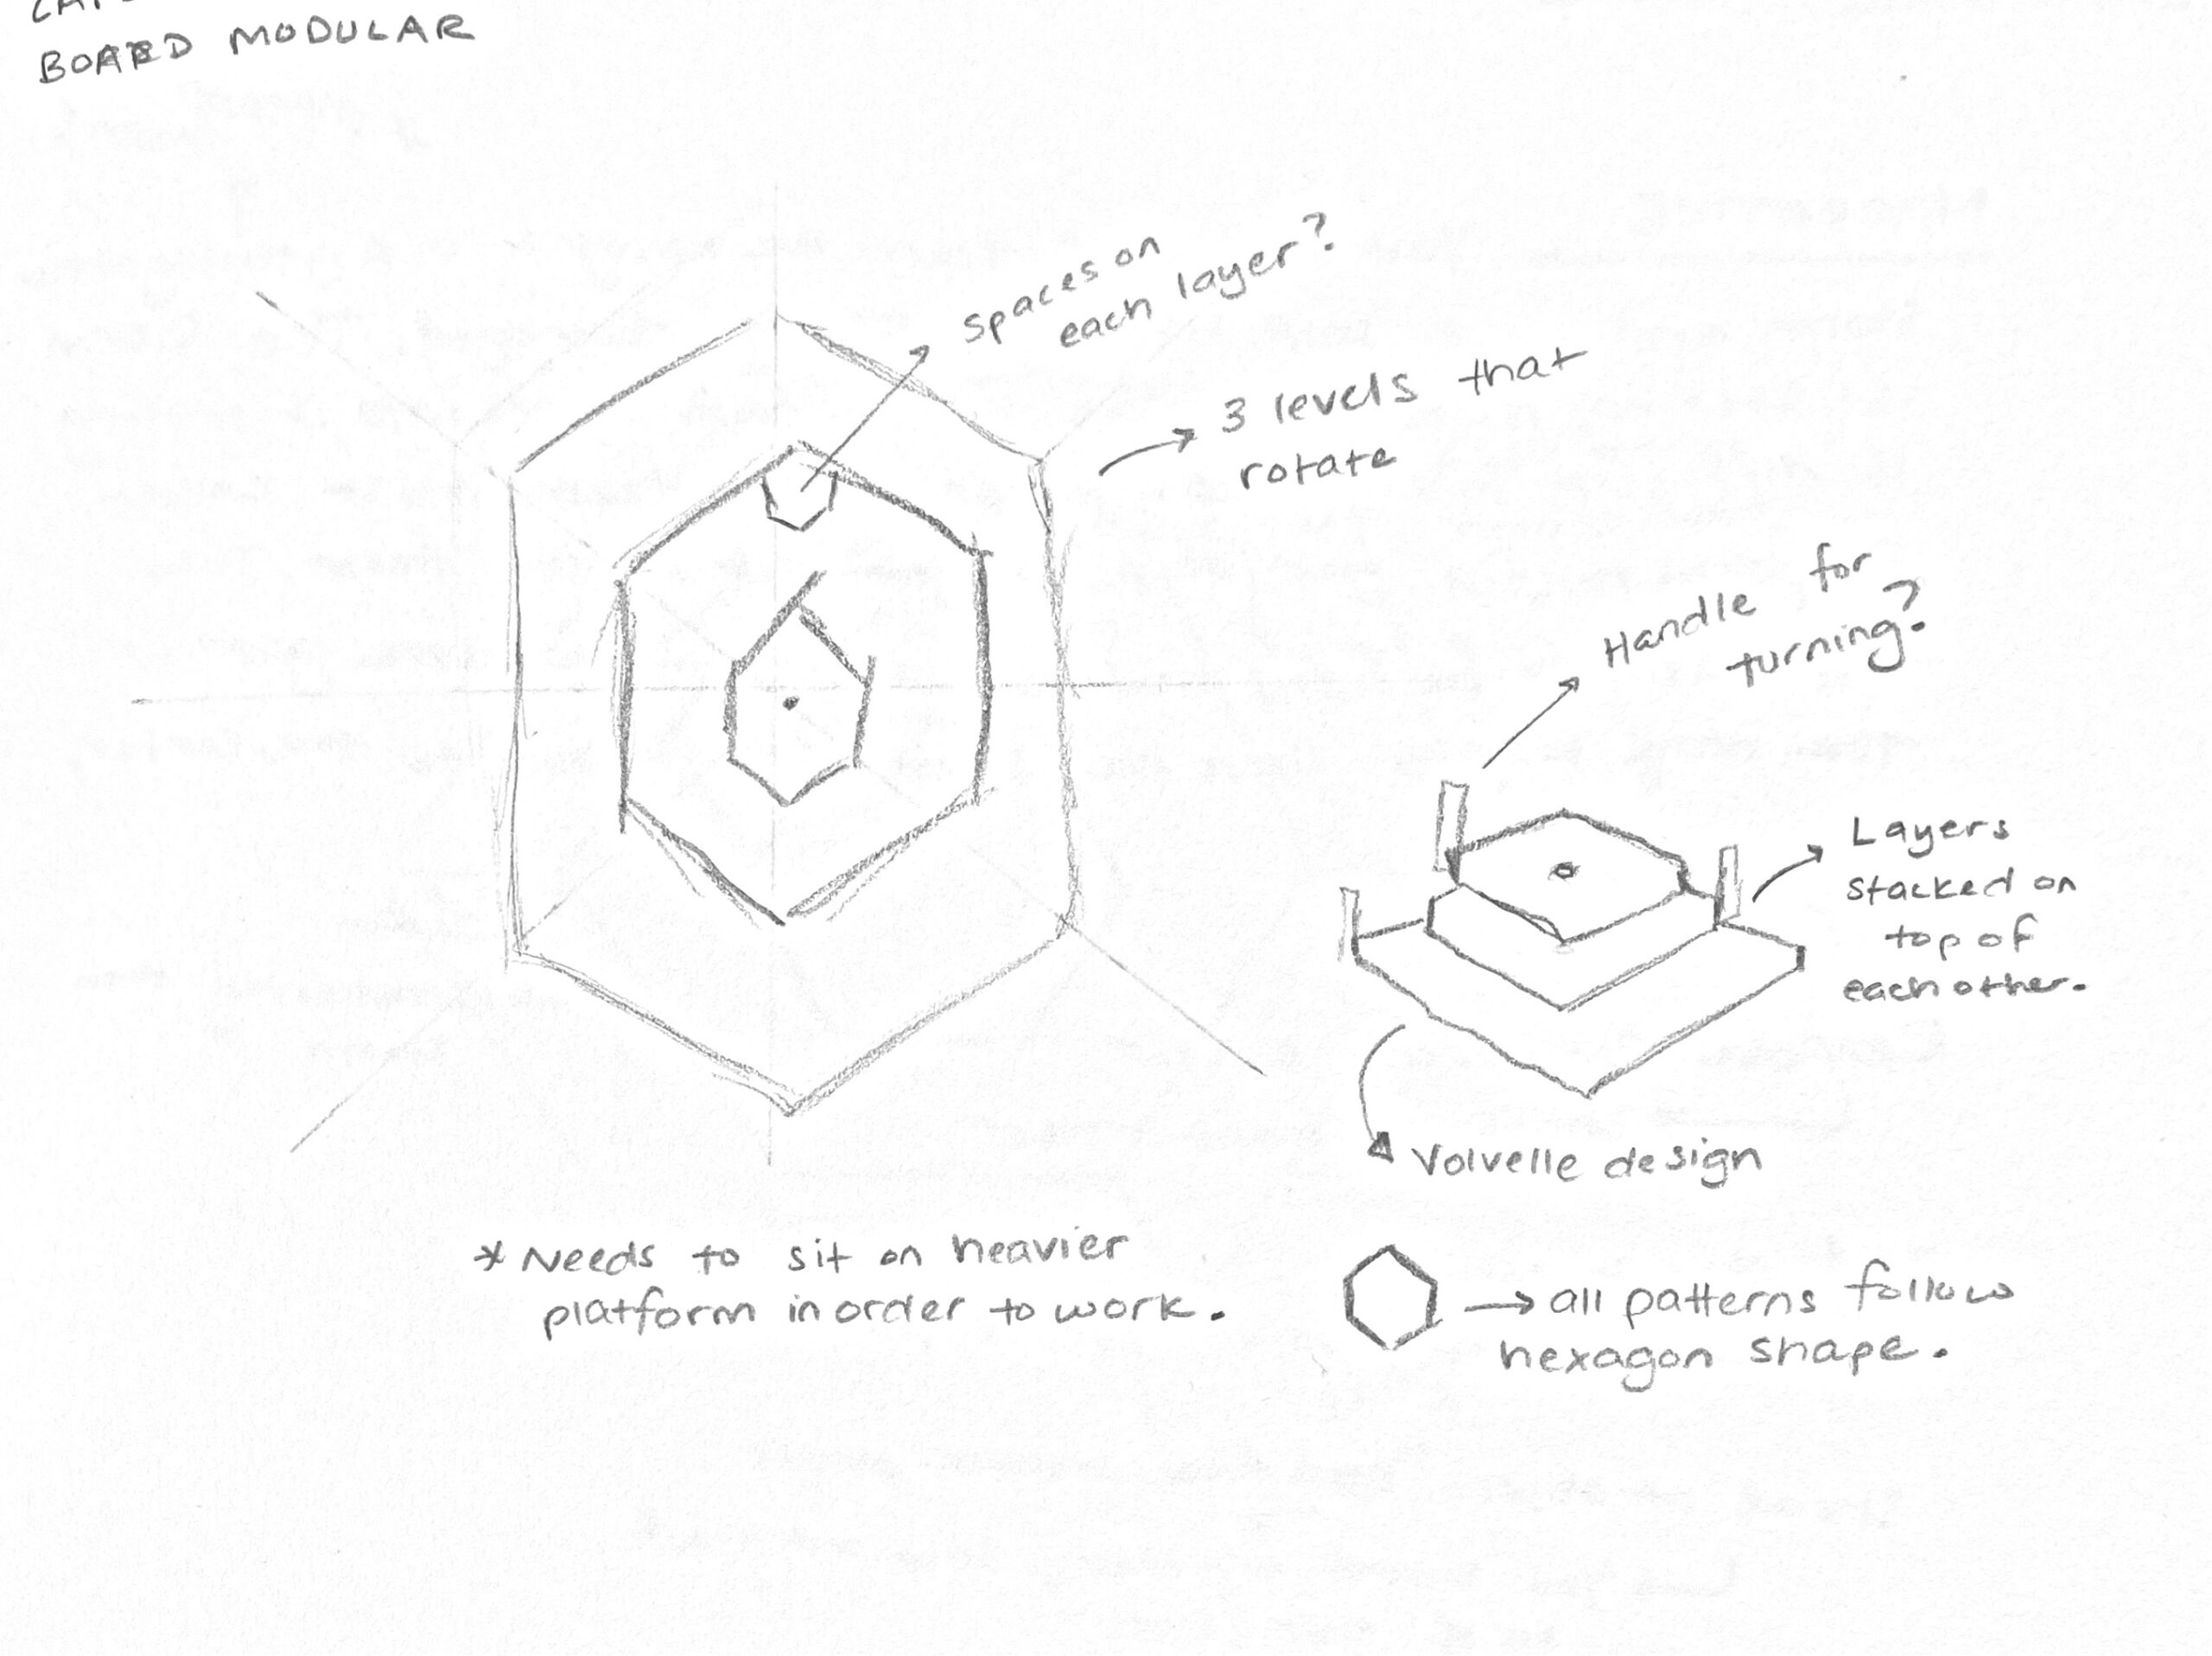 BOARD MODULAR
Spaces on
each layer?
3 levels that
rotate
Handle for
turning?
Layers
stacked on
top of
each other.
Volvelle design
* Needs to sit on heavier
platform in order to work.
all patterns follow
hexagon shape.